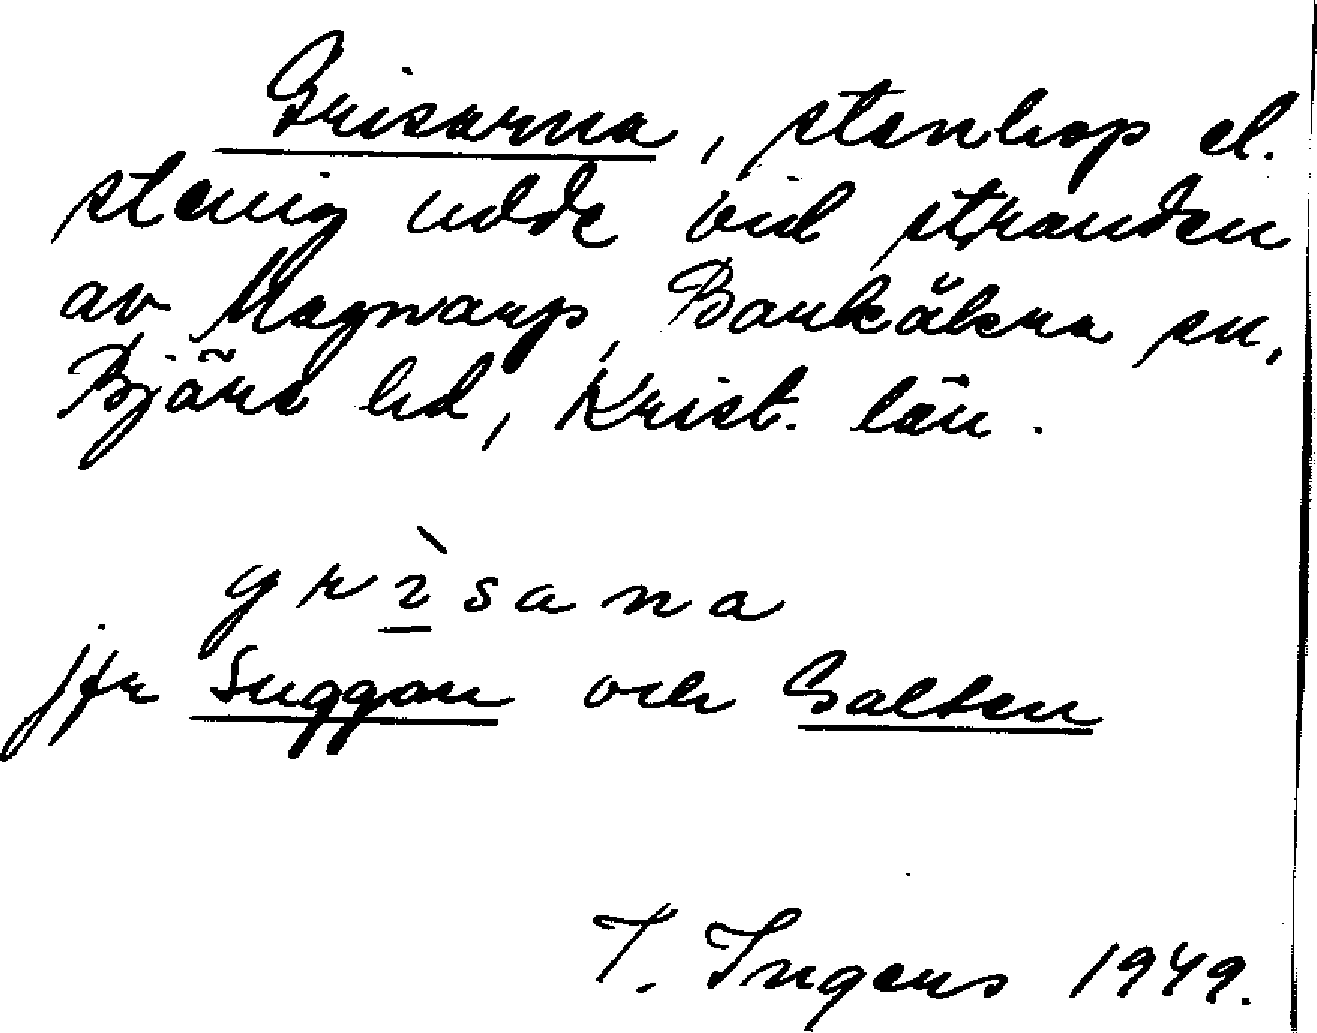 Grisarna, stenhop el.
stenig udde vid stranden
av Magnarp, Barkåkra sn,
Bjäre hd, Krist. län.
grìsana
jfr Suggan och Galten
T. Ingers 1949.